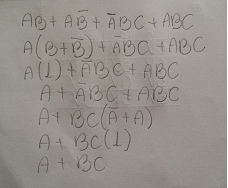 AB + AB̅ + A̅BC + ABC
A(B+B̅) + A̅BC + ABC
A(1) + A̅BC + ABC
A + A̅BC + ABC
A + BC(A̅+A)
A + BC(1)
A + BC